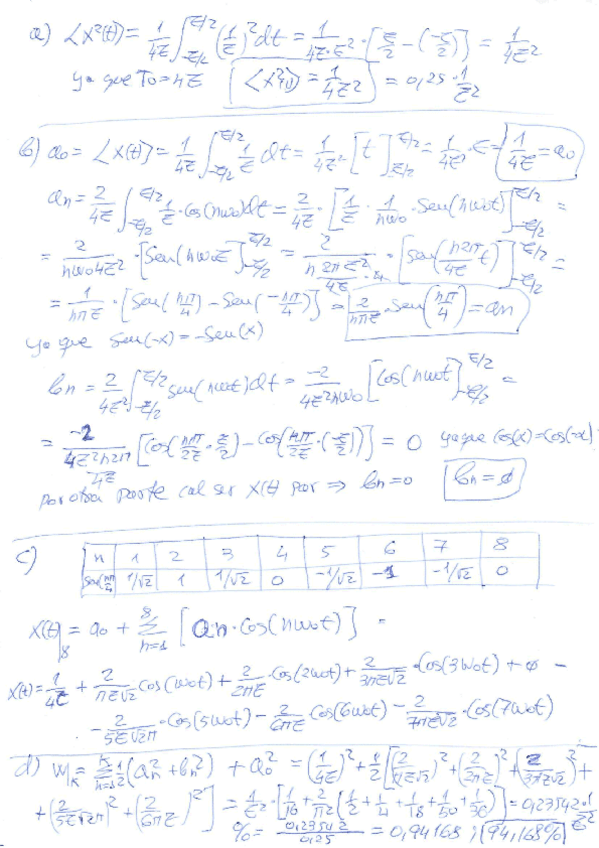 a) <x²(t)> = 1/4τ ∫_{-τ/2}^{τ/2} (1/τ)² dt = 1/(4τ·τ²) · [τ/2 - (-τ/2)] = 1/4τ²
ya que To=4τ <x²(t)> = 1/4τ² = 0,25·1/τ²
b) a₀ = <x(t)> = 1/4τ ∫_{-τ/2}^{τ/2} 1/τ dt = 1/4τ² [t]_{-τ/2}^{τ/2} = 1/4τ² · τ = 1/4τ = a₀
an = 2/4τ ∫_{-τ/2}^{τ/2} 1/τ · cos(nwot)dt = 2/4τ · [1/τ · 1/nwo · sen(nwot)]_{-τ/2}^{τ/2} =
= 2/(nwo4τ²) · [sen(nwot)]_{-τ/2}^{τ/2} = 2/(n 2π/4τ τ²·4) · [sen(n2π/4τ t)]_{-τ/2}^{τ/2} =
= 1/nπτ · [sen(nπ/4) - sen(-nπ/4)] = 2/nπτ · sen(nπ/4) = an
ya que sen(-x) = -sen(x)
bn = 2/4τ² ∫_{-τ/2}^{τ/2} sen(nwot)dt = -2/(4τ²nwo) [cos(nwot)]_{-τ/2}^{τ/2} =
= -2/(4τ²n2π/4τ) [cos(nπ/2τ · τ/2) - cos(nπ/2τ · (-τ/2))] = 0 ya que cos(x)=cos(-x)
por otra parte al ser x(t) par ⇒ bn=0 bn = ø
c) n 1 2 3 4 5 6 7 8
sen(nπ/4) 1/√2 1 1/√2 0 -1/√2 -1 -1/√2 0
x(t)|₈ = a₀ + Σ_{n=1}^{8} [an·cos(nwot)] =
x(t) = 1/4τ + 2/(πτ√2) cos(wot) + 2/2πτ · cos(2wot) + 2/(3πτ√2) · cos(3wot) + ø -
- 2/(5τ√2π) · cos(5wot) - 2/6πτ cos(6wot) - 2/(7πτ√2) · cos(7wot)
d) W|k = Σ_{n=1}^{k} 1/2 (an² + bn²) + a₀² = (1/4τ)² + 1/2 [(2/(πτ√2))² + (2/2πτ)² + (2/(3πτ√2))² +
+ (2/(5τ√2π))² + (2/6πτ)²] = 1/τ² · [1/16 + 2/π² (1/2 + 1/4 + 1/18 + 1/50 + 1/36)] = 0,23542·1/τ²
% = 0,23542/0,25 = 0,94168 ; 94,168%